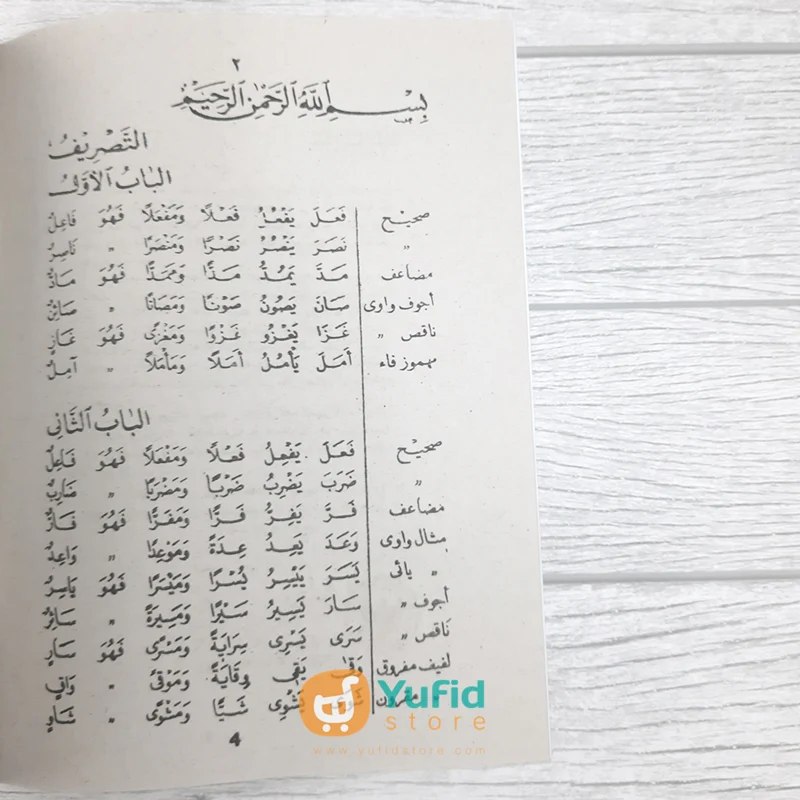 ٢
بِسْمِ اللهِ الرَّحْمٰنِ الرَّحِيْمِ
التَّصْرِيْفُ
الْبَابُ الْأَوَّلُ
صَحِيْح فَعَلَ يَفْعُلُ فَعْلًا وَمَفْعَلًا فَهُوَ فَاعِلٌ
" نَصَرَ يَنْصُرُ نَصْرًا وَمَنْصَرًا " نَاصِرٌ
مضاعف مَدَّ يَمُدُّ مَدًّا وَمَمَدًّا فَهُوَ مَادٌّ
أجوف واوى صَانَ يَصُوْنُ صَوْنًا وَمَصَانًا " صَائِنٌ
ناقص " غَزَا يَغْزُو غَزْوًا وَمَغْزًى فَهُوَ غَازٍ
مهموز فاء أَمَلَ يَأْمُلُ أَمَلًا وَمَأْمَلًا " آمِلٌ
الْبَابُ الثَّانِى
صَحِيْح فَعَلَ يَفْعِلُ فَعْلًا وَمَفْعَلًا فَهُوَ فَاعِلٌ
" ضَرَبَ يَضْرِبُ ضَرْبًا وَمَضْرَبًا " ضَارِبٌ
مضاعف فَرَّ يَفِرُّ فَرًّا وَمَفَرًّا فَهُوَ فَارٌّ
مثال واوى وَعَدَ يَعِدُ عِدَةً وَمَوْعِدًا " وَاعِدٌ
" يائى يَسَرَ يَيْسِرُ يُسْرًا وَمَيْسَرًا فَهُوَ يَاسِرٌ
أجوف " سَارَ يَسِيْرُ سَيْرًا وَمَسِيْرَةً " سَائِرٌ
ناقص " سَرَى يَسْرِى سِرَايَةً وَمَسْرًى فَهُوَ سَارٍ
لفيف مفروق وَقَى يَقِى وِقَايَةً وَمَوْقًى " وَاقٍ
مقرون شَوَى يَشْوِى شَيًّا وَمَشْوًى " شَاوٍ
4
Yufid
store
www.yufidstore.com